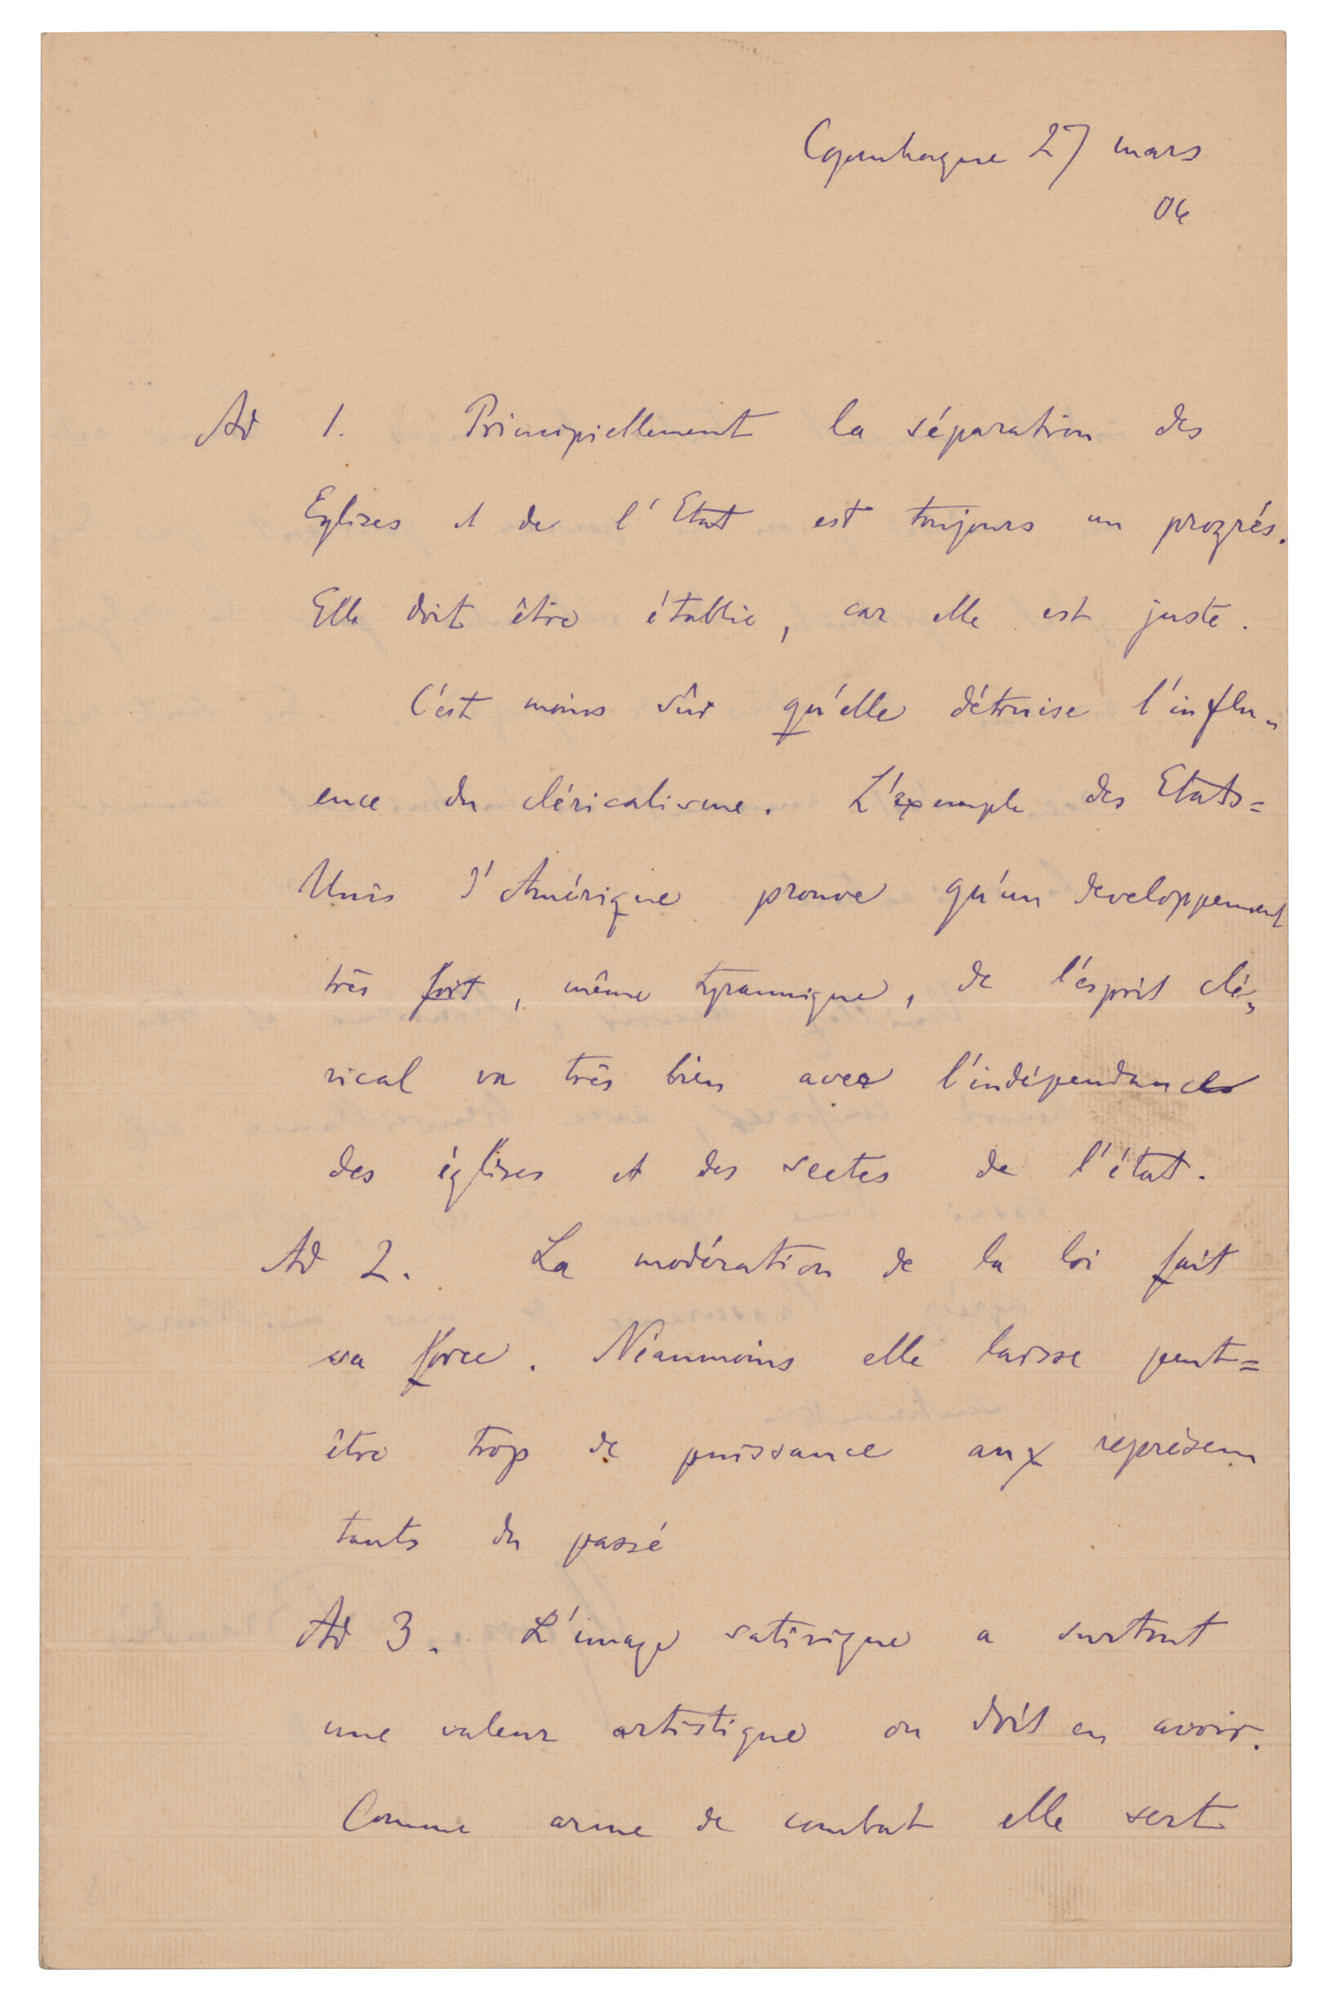 Copenhague 27 mars
06
Ad 1. Principiellement la séparation des
Eglises et de l'Etat est toujours un progrés.
Elle doit être établie, car elle est juste.
C'est moins sûr qu'elle détruise l'influ-
ence du cléricalisme. L'exemple des Etats=
Unis d'Amérique prouve qu'un developpement
très fort, même tyrannique, de l'esprit clé-
rical va très bien avec l'indépendance
des églises et des sectes de l'état.
Ad 2. La modération de la loi fait
sa force. Néanmoins elle laisse peut=
être trop de puissance aux représen
tants du passé
Ad 3. L'image satirique a surtout
une valeur artistique ou doit en avoir.
Comme arme de combat elle sert